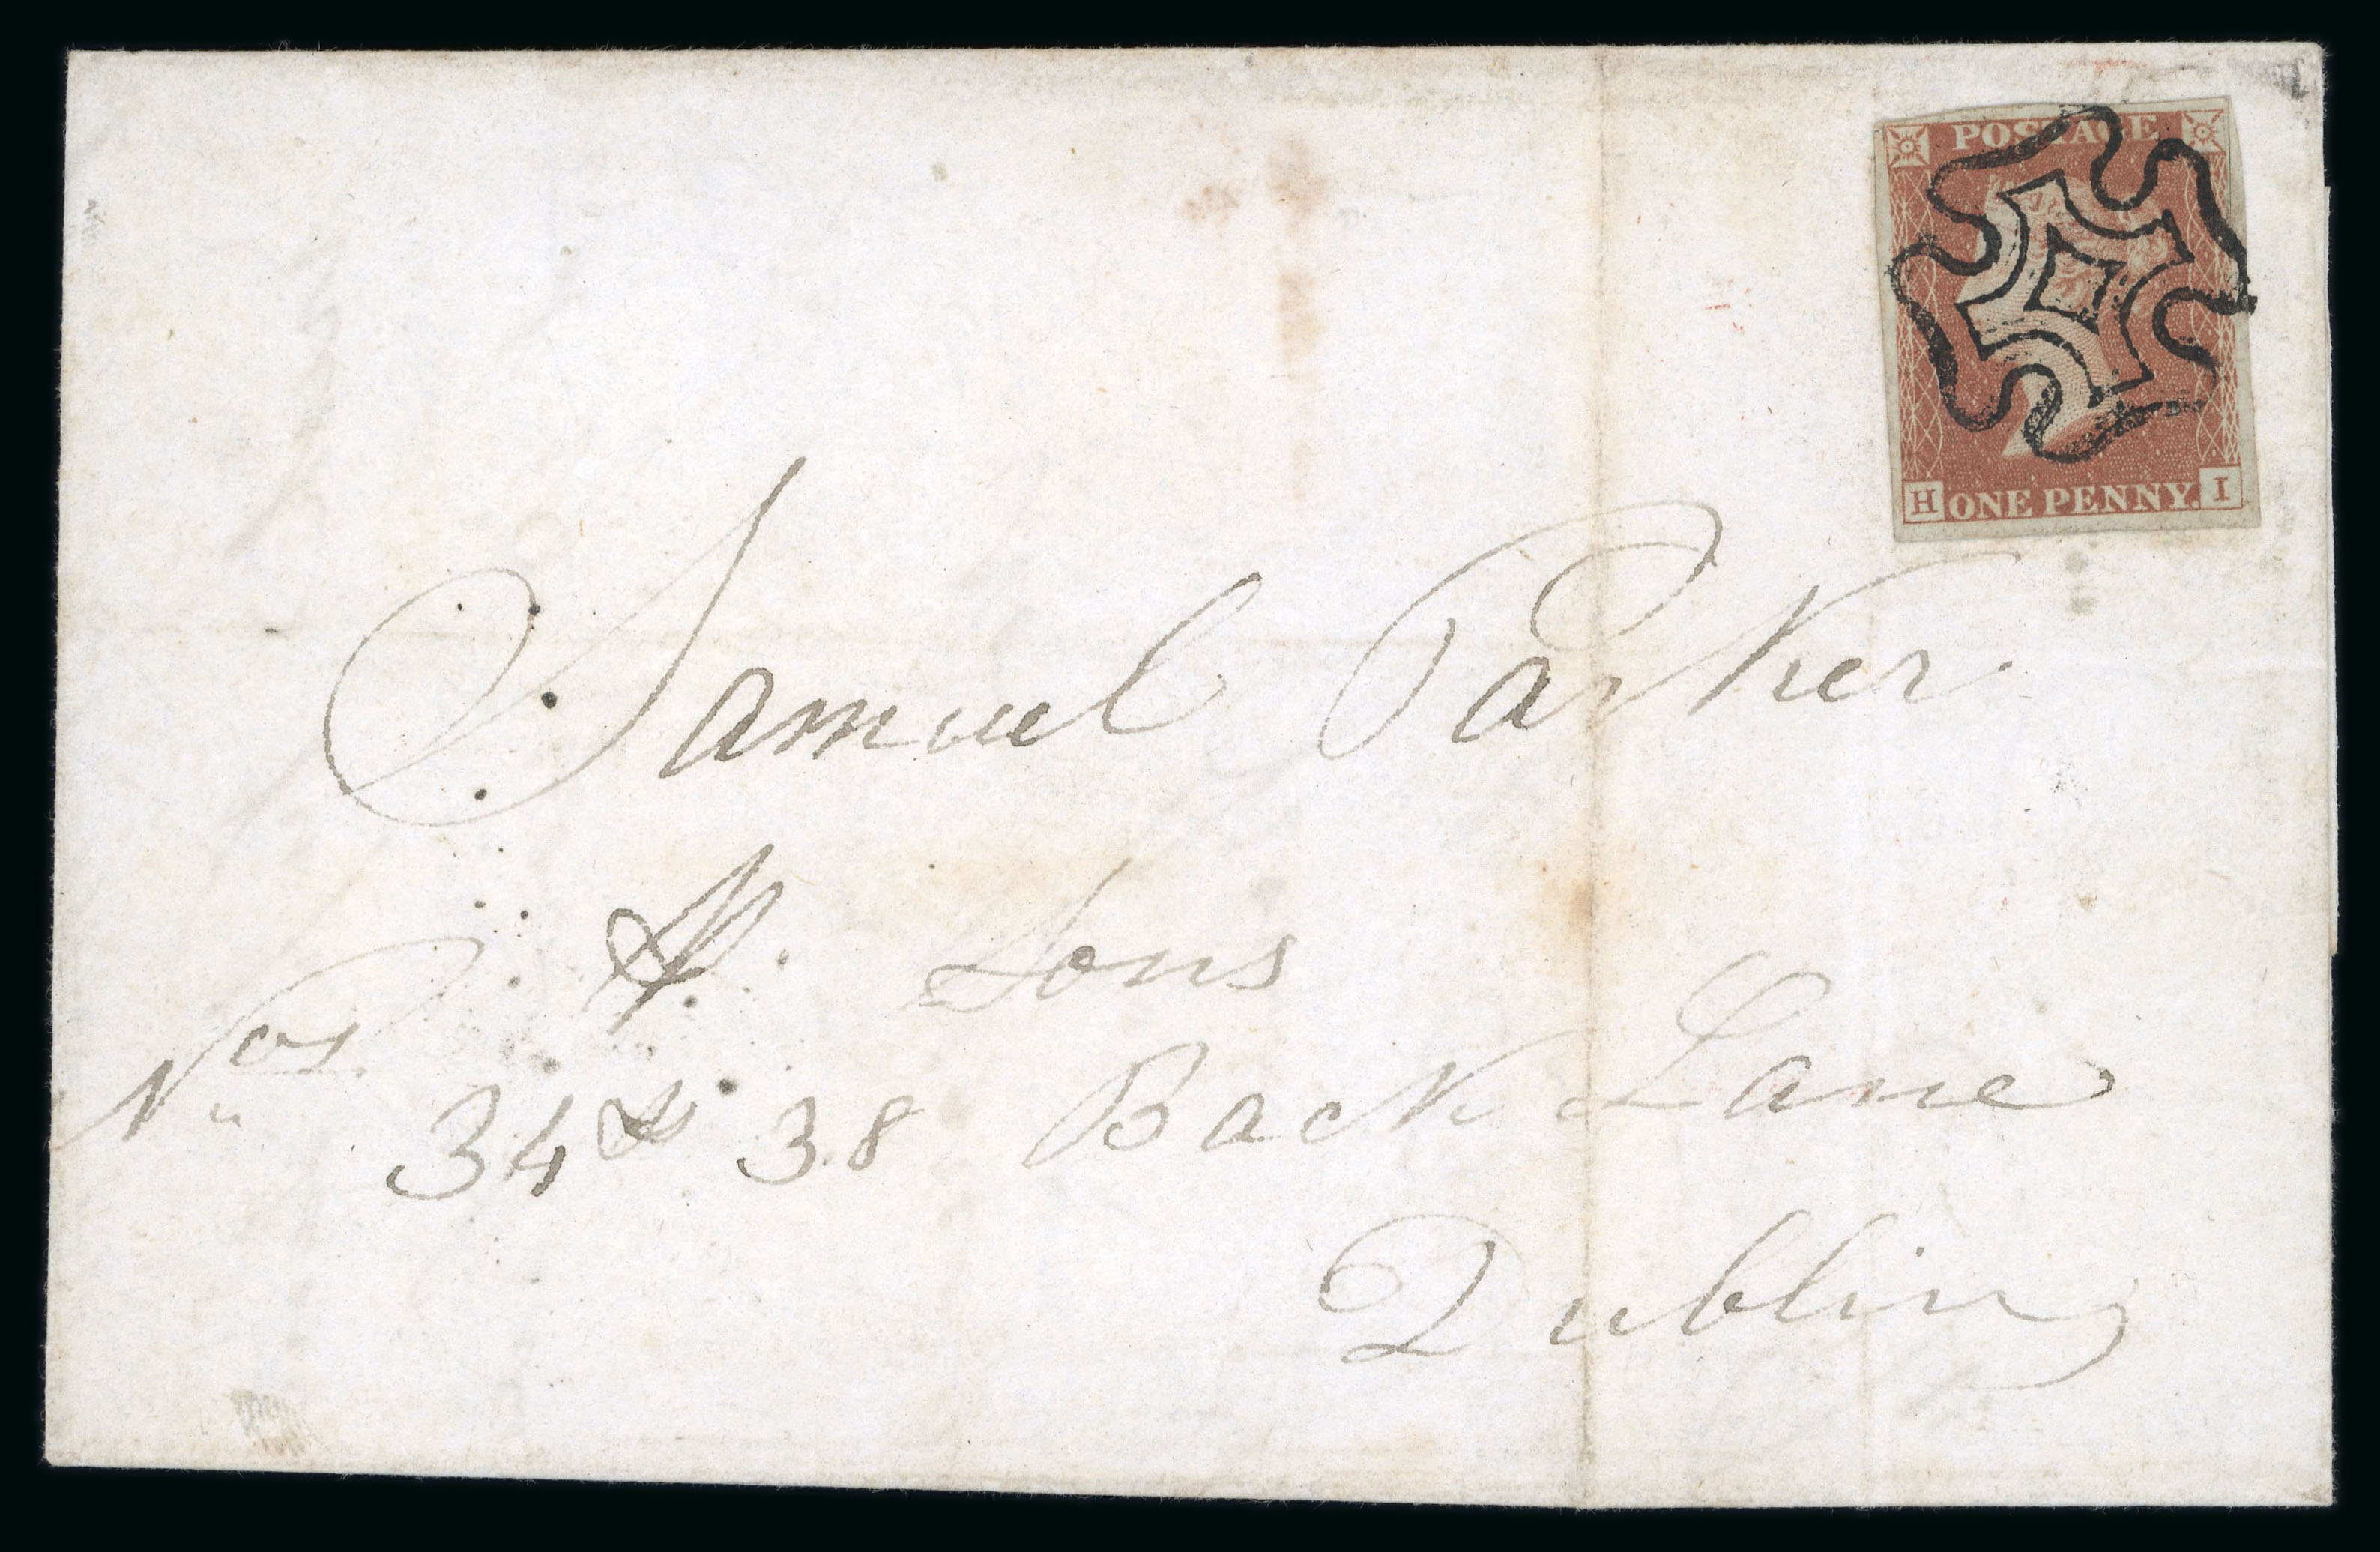 POSTAGE
H ONE PENNY. I
Samuel Parker
& Sons
Nos 34 & 38 Back Lane
Dublin